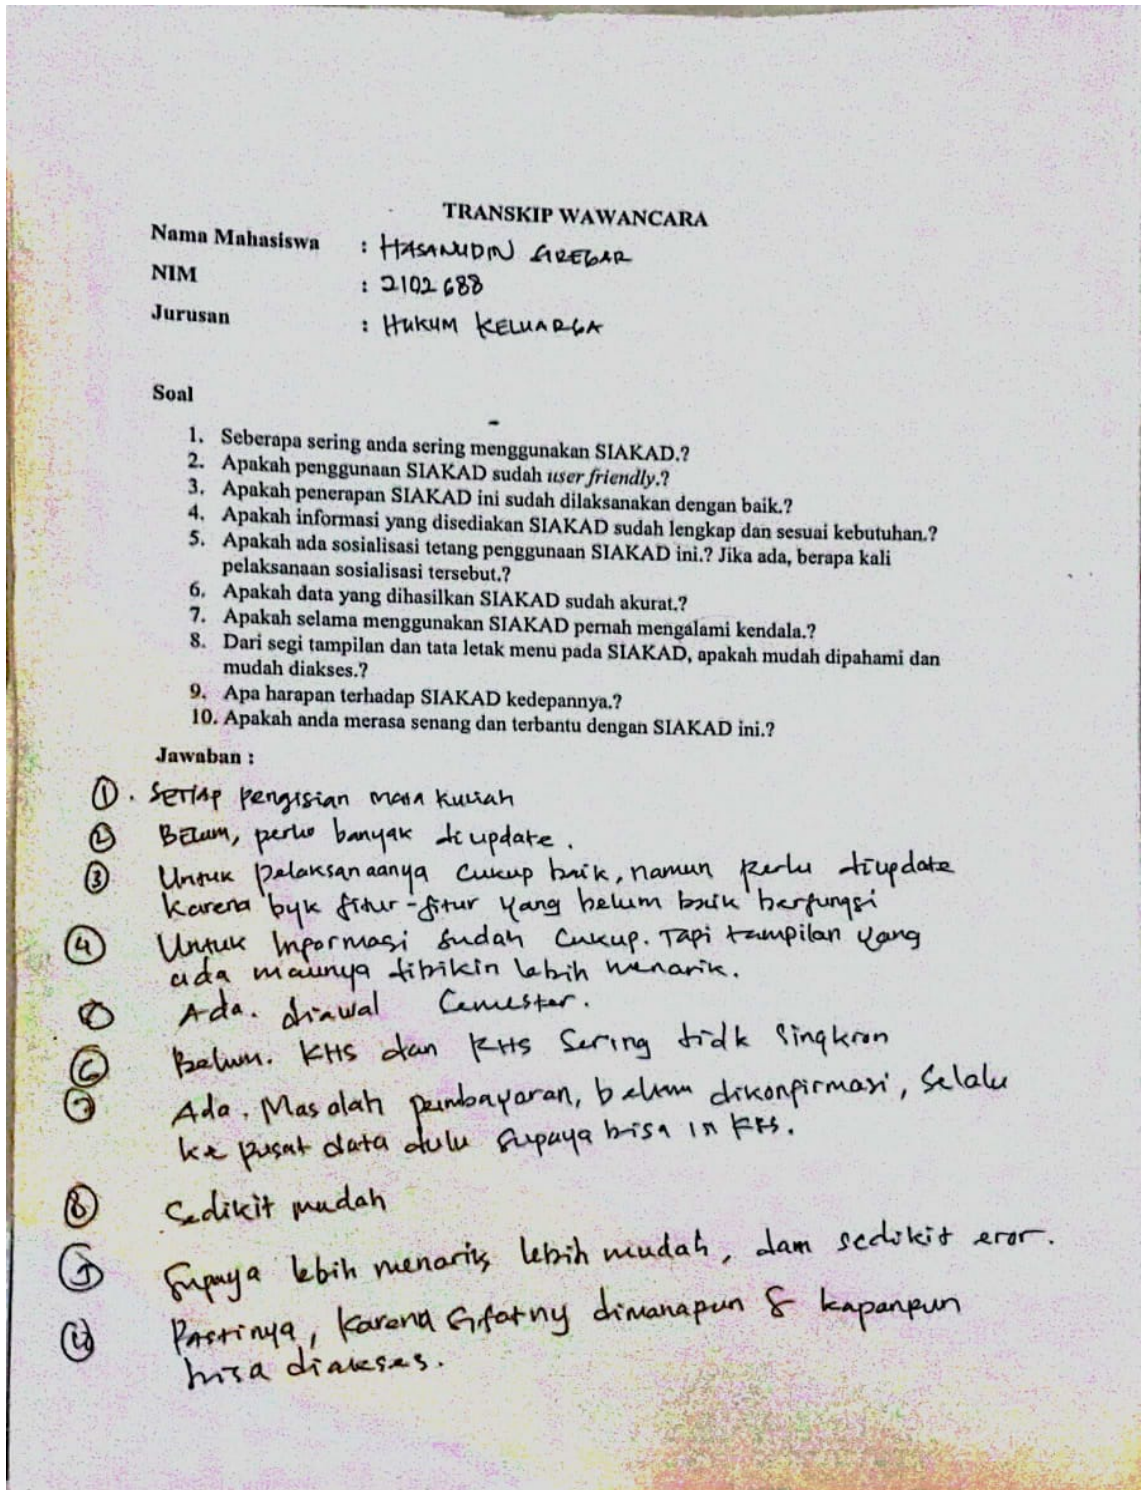 TRANSKIP WAWANCARA
Nama Mahasiswa : HASANUDIN SIREGAR
NIM : 2102688
Jurusan : HUKUM KELUARGA
Soal
1. Seberapa sering anda sering menggunakan SIAKAD.?
2. Apakah penggunaan SIAKAD sudah user friendly.?
3. Apakah penerapan SIAKAD ini sudah dilaksanakan dengan baik.?
4. Apakah informasi yang disediakan SIAKAD sudah lengkap dan sesuai kebutuhan.?
5. Apakah ada sosialisasi tetang penggunaan SIAKAD ini.? Jika ada, berapa kali
pelaksanaan sosialisasi tersebut.?
6. Apakah data yang dihasilkan SIAKAD sudah akurat.?
7. Apakah selama menggunakan SIAKAD pernah mengalami kendala.?
8. Dari segi tampilan dan tata letak menu pada SIAKAD, apakah mudah dipahami dan
mudah diakses.?
9. Apa harapan terhadap SIAKAD kedepannya.?
10. Apakah anda merasa senang dan terbantu dengan SIAKAD ini.?
Jawaban :
1. Setiap pengisian mata kuliah
2 Belum, perlu banyak diupdate.
3 Untuk pelaksanaanya cukup baik, namun perlu diupdate
karena byk fitur-fitur yang belum baik berfungsi
4 Untuk Informasi sudah cukup. Tapi tampilan yang
ada maunya dibikin lebih menarik.
Ada. diawal Cemester.
6 Belum. KHS dan KHS Sering tidk Singkron
7 Ada. Masalah pembayaran, belum dikonfirmasi, Selalu
ke pusat data dulu supaya bisa
8 Sedikit mudah
9 Supaya lebih menarik lebih mudah, dam sedikit eror.
Pastinya, karena sifatny dimanapun & kapanpun
bisa diakses.